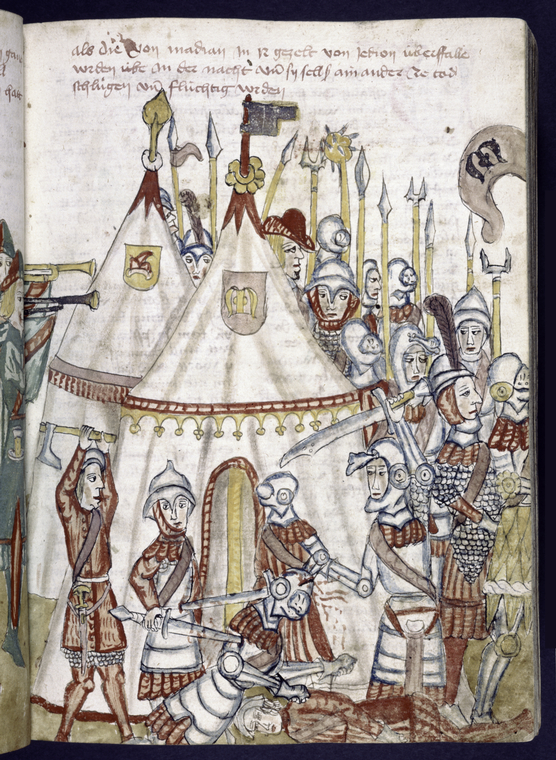 als die von madian in ir gezelt von Jedion überffalle
wrden übe in der nacht vnd sy selb ain ander ze tod
schlůgen vnd fluchtig wrden